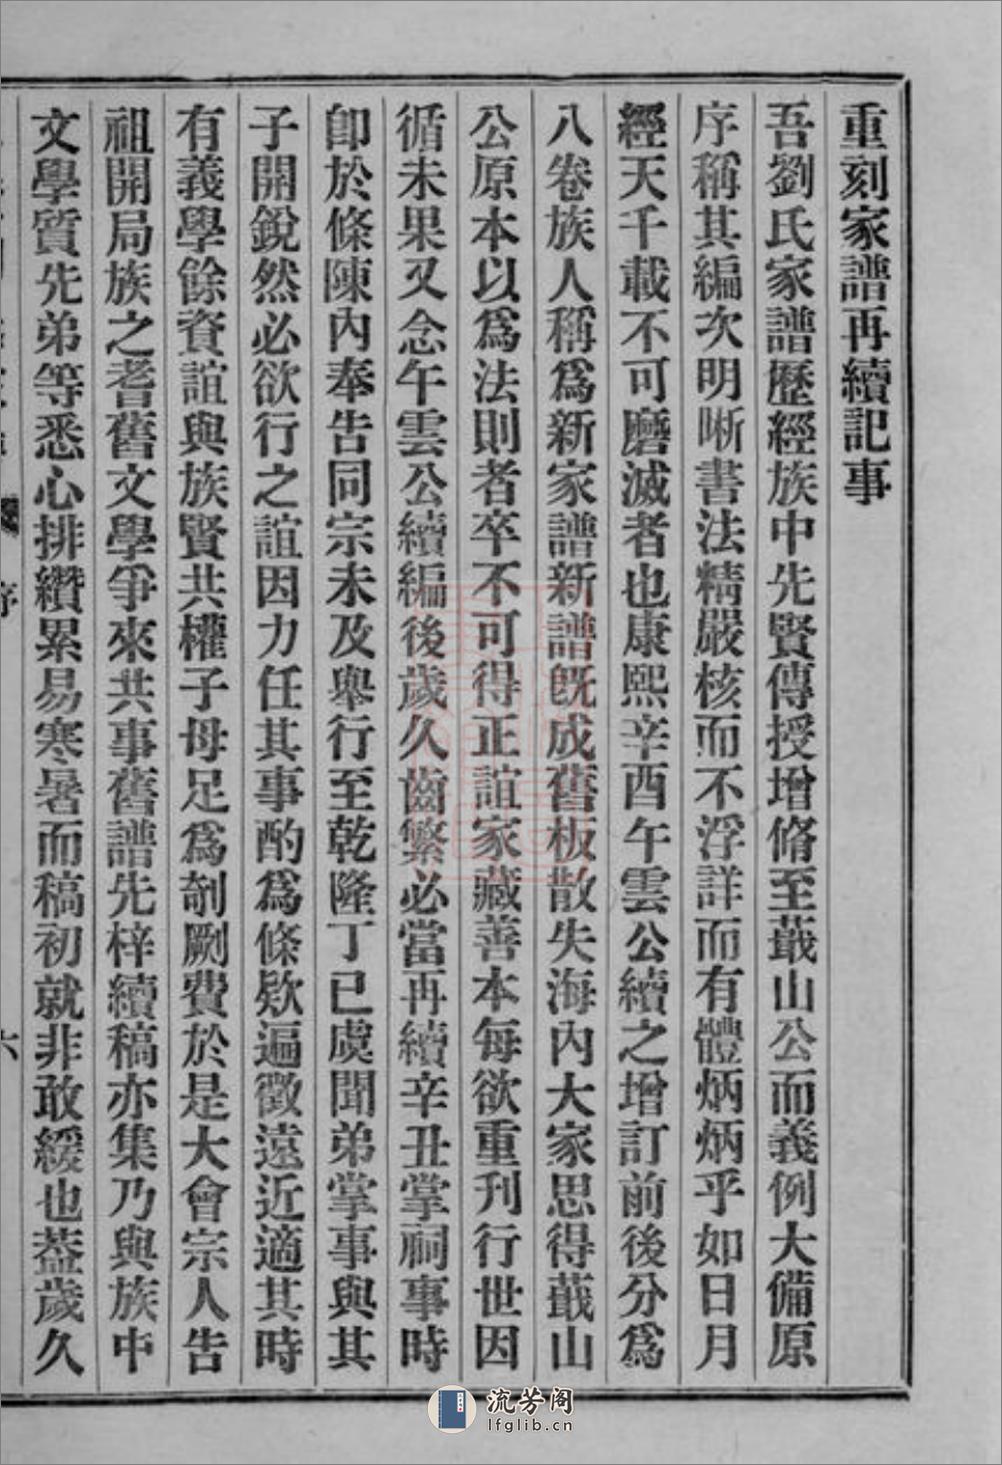 重刻家譜再續記事
吾劉氏家譜歷經族中先賢傳授增脩至蕺山公而義例大備原
序稱其編次明晰書法精嚴核而不浮詳而有體炳炳乎如日月
經天千載不可磨滅者也康熙辛酉午雲公續之增訂前後分爲
八卷族人稱爲新家譜新譜旣成舊板散失海內大家思得蕺山
公原本以爲法則者卒不可得正誼家藏善本每欲重刊行世因
循未果又念午雲公續編後歲久齒繁必當再續辛丑掌祠事時
卽於條陳內奉告同宗未及舉行至乾隆丁巳虔聞弟掌事與其
子開銳然必欲行之誼因力任其事酌爲條欵遍徵遠近適其時
有義學餘資誼與族賢共權子母足爲剞劂費於是大會宗人告
祖開局族之耆舊文學爭來共事舊譜先梓續稿亦集乃與族中
文學質先弟等悉心排纘累易寒暑而稿初就非敢緩也葢歲久
序
六
流芳阁
lfglib.cn